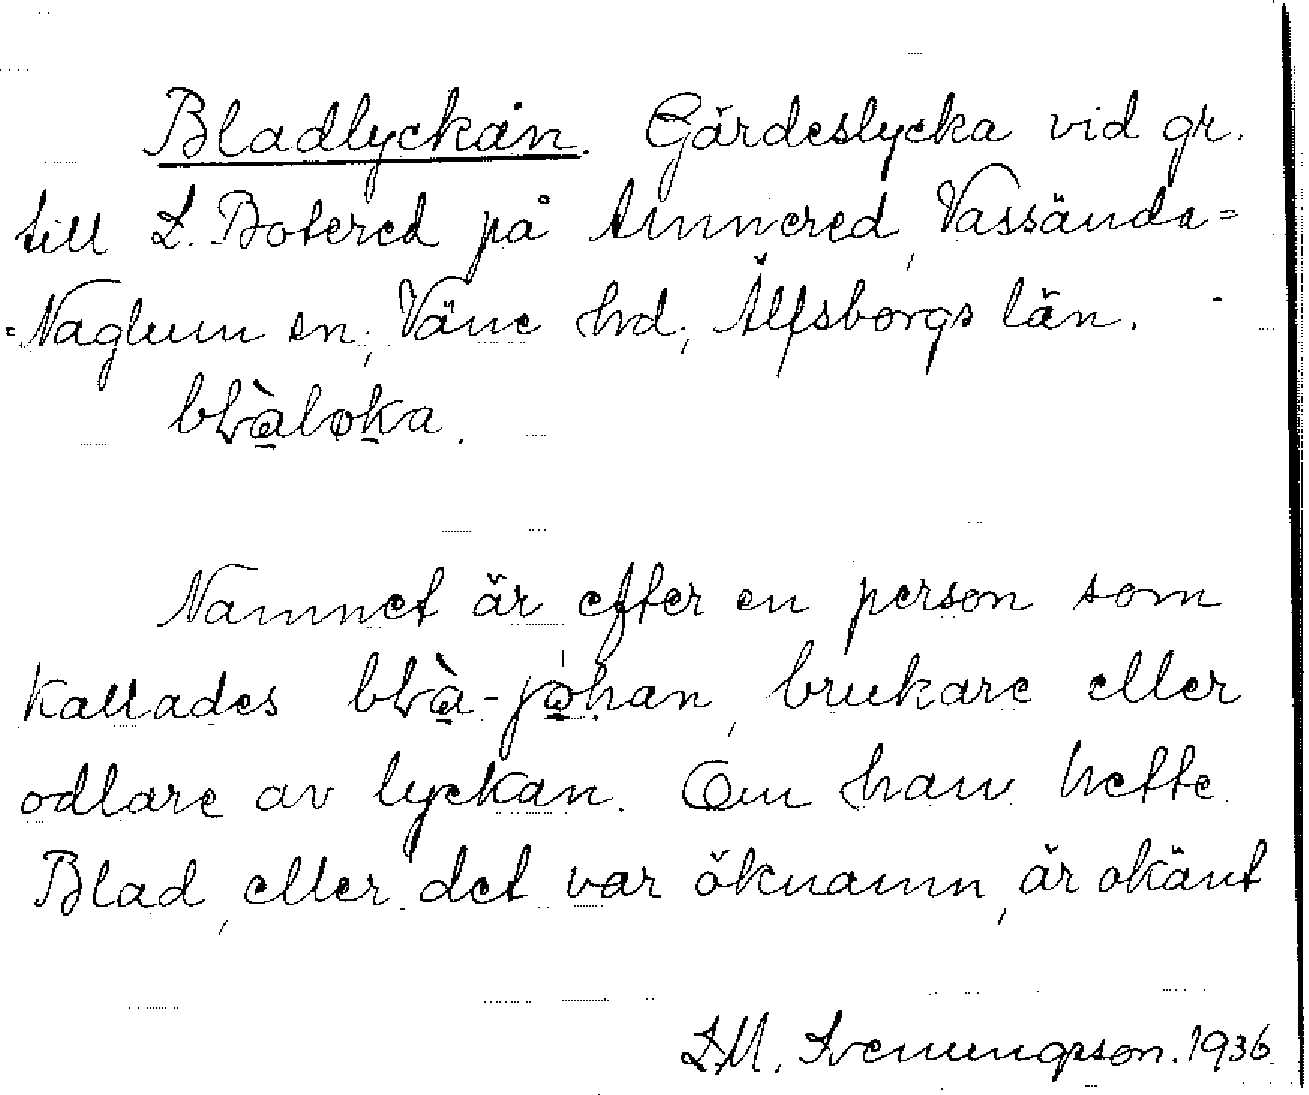 Bladlyckan. Gärdeslycka vid gr.
till L. Botered på Annered, Vassända=
=Naglum sn, Väne hd, Älfsborgs län.
bʟàloka.
Namnet är efter en person som
kallades bʟà-johan, brukare eller
odlare av lyckan. Om han hette
Blad, eller det var öknamn, är okänt
L.M. Svenungsson. 1936